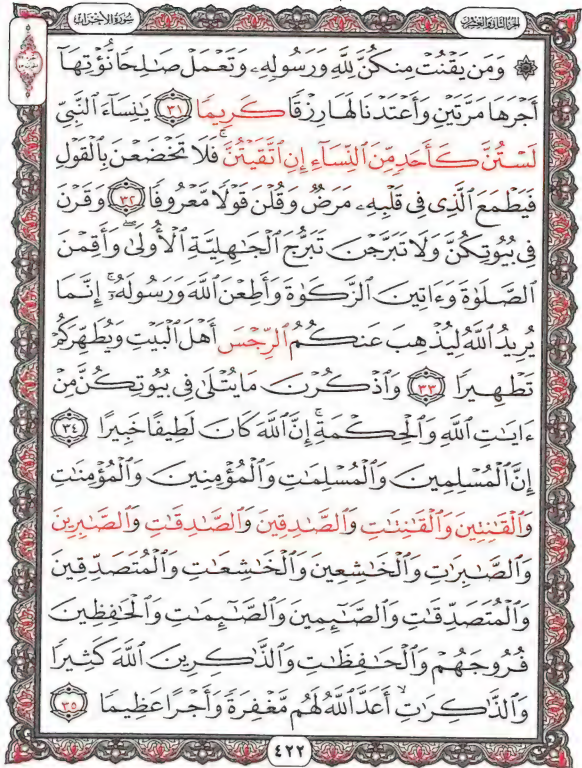 الجزء الثاني والعشرون
سورة الأحزاب
۞ وَمَن يَقْنُتْ مِنكُنَّ لِلَّهِ وَرَسُولِهِۦ وَتَعْمَلْ صَـٰلِحًا نُّؤْتِهَآ
أَجْرَهَا مَرَّتَيْنِ وَأَعْتَدْنَا لَهَا رِزْقًا كَرِيمًا ٣١ يَـٰنِسَآءَ ٱلنَّبِىِّ
لَسْتُنَّ كَأَحَدٍ مِّنَ ٱلنِّسَآءِ إِنِ ٱتَّقَيْتُنَّ ۚ فَلَا تَخْضَعْنَ بِٱلْقَوْلِ
فَيَطْمَعَ ٱلَّذِى فِى قَلْبِهِۦ مَرَضٌ وَقُلْنَ قَوْلًا مَّعْرُوفًا ٣٢ وَقَرْنَ
فِى بُيُوتِكُنَّ وَلَا تَبَرَّجْنَ تَبَرُّجَ ٱلْجَـٰهِلِيَّةِ ٱلْأُولَىٰ ۖ وَأَقِمْنَ
ٱلصَّلَوٰةَ وَءَاتِينَ ٱلزَّكَوٰةَ وَأَطِعْنَ ٱللَّهَ وَرَسُولَهُۥٓ ۚ إِنَّمَا
يُرِيدُ ٱللَّهُ لِيُذْهِبَ عَنكُمُ ٱلرِّجْسَ أَهْلَ ٱلْبَيْتِ وَيُطَهِّرَكُمْ
تَطْهِيرًا ٣٣ وَٱذْكُرْنَ مَا يُتْلَىٰ فِى بُيُوتِكُنَّ مِنْ
ءَايَـٰتِ ٱللَّهِ وَٱلْحِكْمَةِ ۚ إِنَّ ٱللَّهَ كَانَ لَطِيفًا خَبِيرًا ٣٤
إِنَّ ٱلْمُسْلِمِينَ وَٱلْمُسْلِمَـٰتِ وَٱلْمُؤْمِنِينَ وَٱلْمُؤْمِنَـٰتِ
وَٱلْقَـٰنِتِينَ وَٱلْقَـٰنِتَـٰتِ وَٱلصَّـٰدِقِينَ وَٱلصَّـٰدِقَـٰتِ وَٱلصَّـٰبِرِينَ
وَٱلصَّـٰبِرَٰتِ وَٱلْخَـٰشِعِينَ وَٱلْخَـٰشِعَـٰتِ وَٱلْمُتَصَدِّقِينَ
وَٱلْمُتَصَدِّقَـٰتِ وَٱلصَّـٰٓئِمِينَ وَٱلصَّـٰٓئِمَـٰتِ وَٱلْحَـٰفِظِينَ
فُرُوجَهُمْ وَٱلْحَـٰفِظَـٰتِ وَٱلذَّٰكِرِينَ ٱللَّهَ كَثِيرًا
وَٱلذَّٰكِرَٰتِ أَعَدَّ ٱللَّهُ لَهُم مَّغْفِرَةً وَأَجْرًا عَظِيمًا ٣٥
٤٢٢